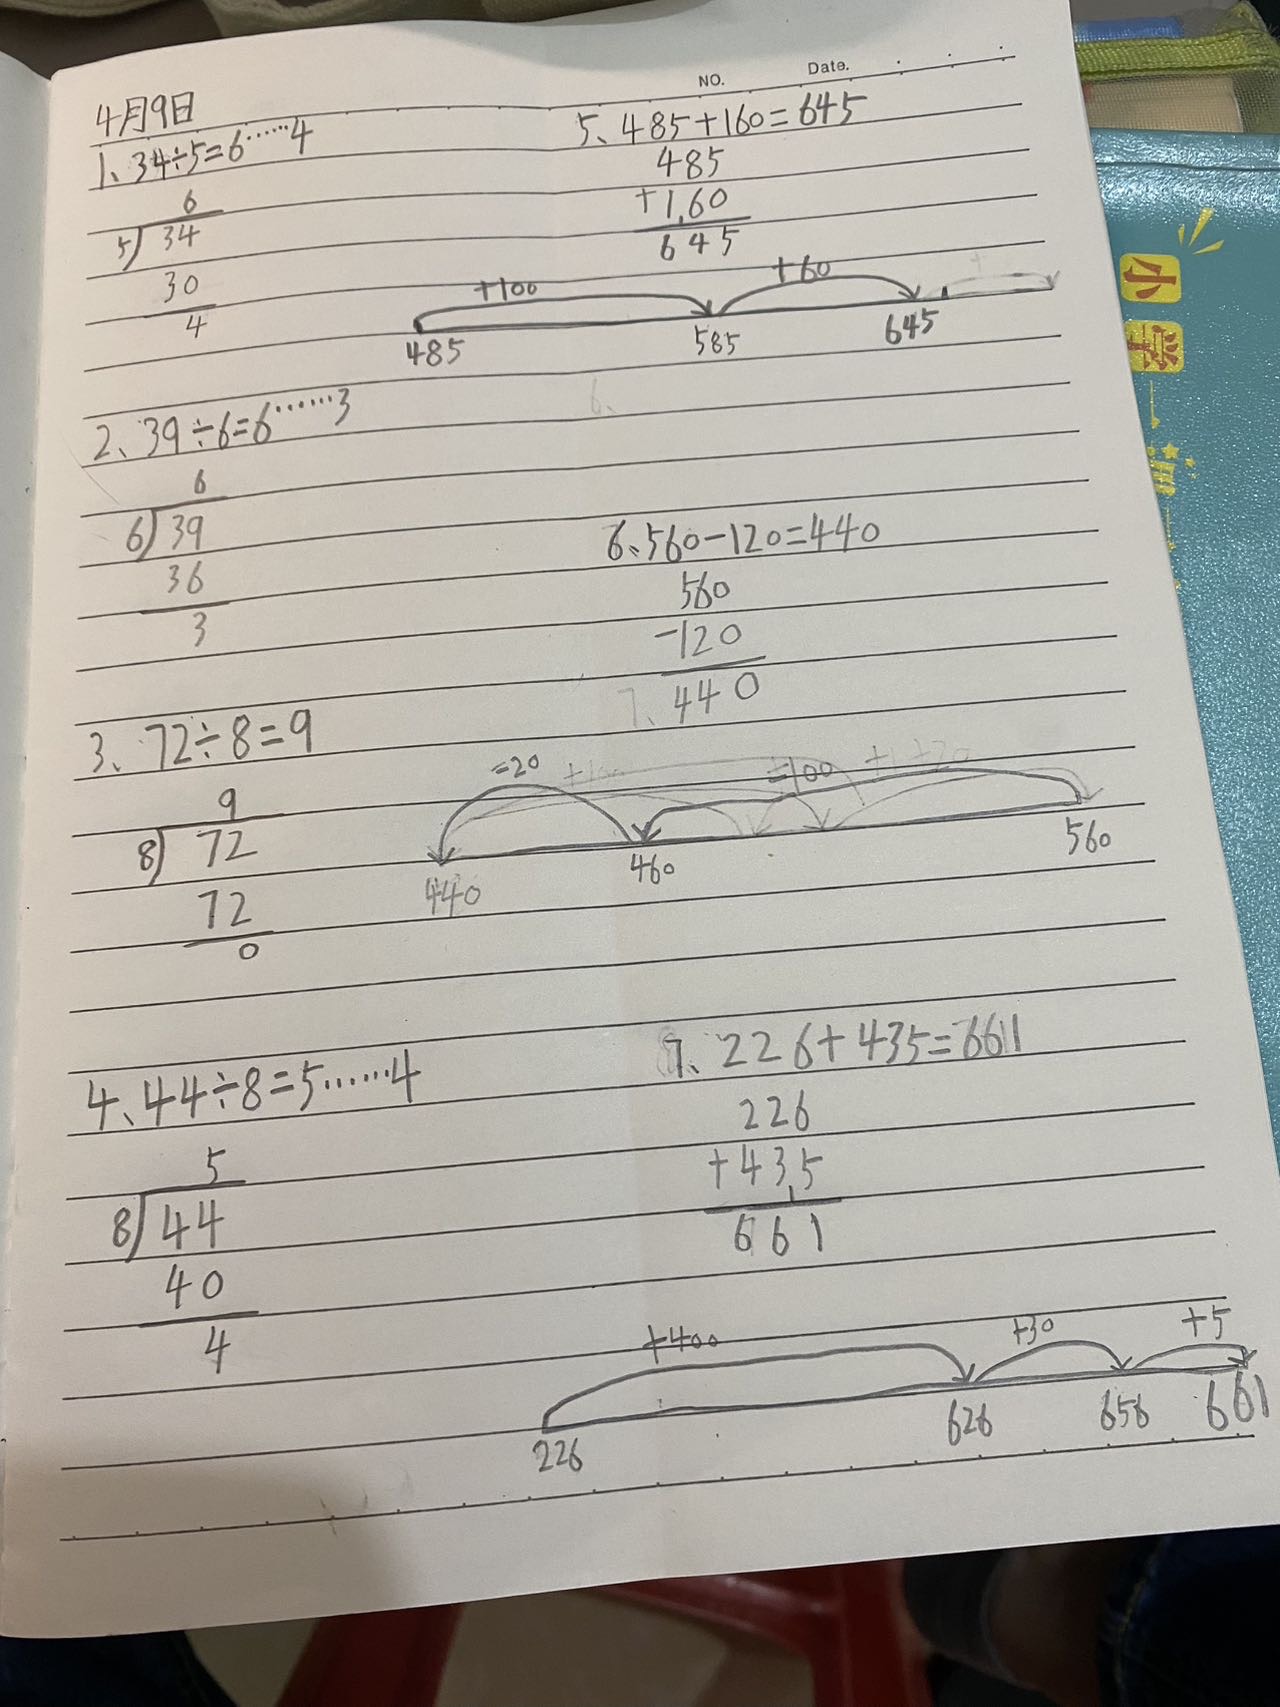 NO.
Date.
4月9日
1、34÷5=6……4
6
5)34
30
4
2、39÷6=6……3
6
6)39
36
3
3、72÷8=9
9
8)72
72
0
4、44÷8=5……4
5
8)44
40
4
5、485+160=645
485
+160
645
+100 +60
485 585 645
6、560-120=440
560
-120
440
=20 =100
440 460 560
7、226+435=661
226
+435
661
+400 +30 +5
226 626 656 661
小
学